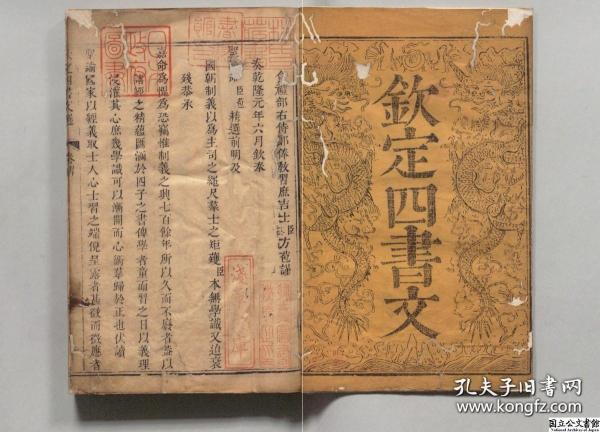 欽定四書文
食禮部右侍郎俸教習庶吉士臣方苞謹
奏乾隆元年六月欽承
聖諭臣苞精選前明及
國朝制義以為主司之繩尺羣士之矩矱臣本無學識又迫衰
殘恭承
嘉命為愧為恐竊惟制義之興七百餘年所以久而不廢者蓋以
諸經之精蘊匯涵於四子之書俾學者童而習之日以義理
浸灌其心庶幾學識可以漸開而心術羣歸於正也伏讀
聖諭國家以經義取士人心士習之端倪呈露者甚微而徵應者
孔夫子旧书网
www.kongfz.com
国立公文書館
National Archives of Japan